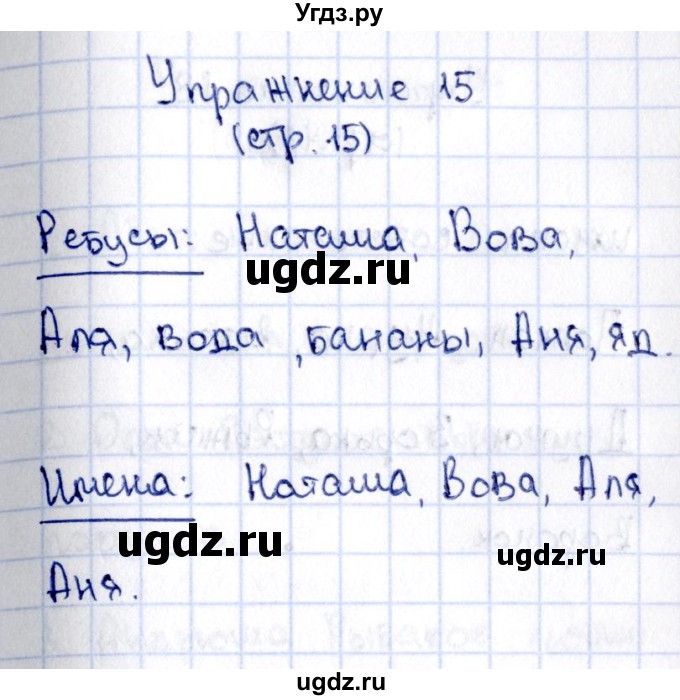 Угдз.ру
Упражнение 15
(стр. 15)
Ребусы: Наташа, Вова,
ugdz.ru
Аля, вода, бананы, Аня, яд.
Имена: Наташа, Вова, Аля,
ugdz.ru ugdz.ru
Аня.
ugdz.ru